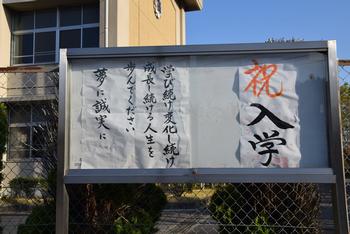 祝
入学
学び続け変化し続け
成長し続ける人生を
歩んでください
夢に誠実に